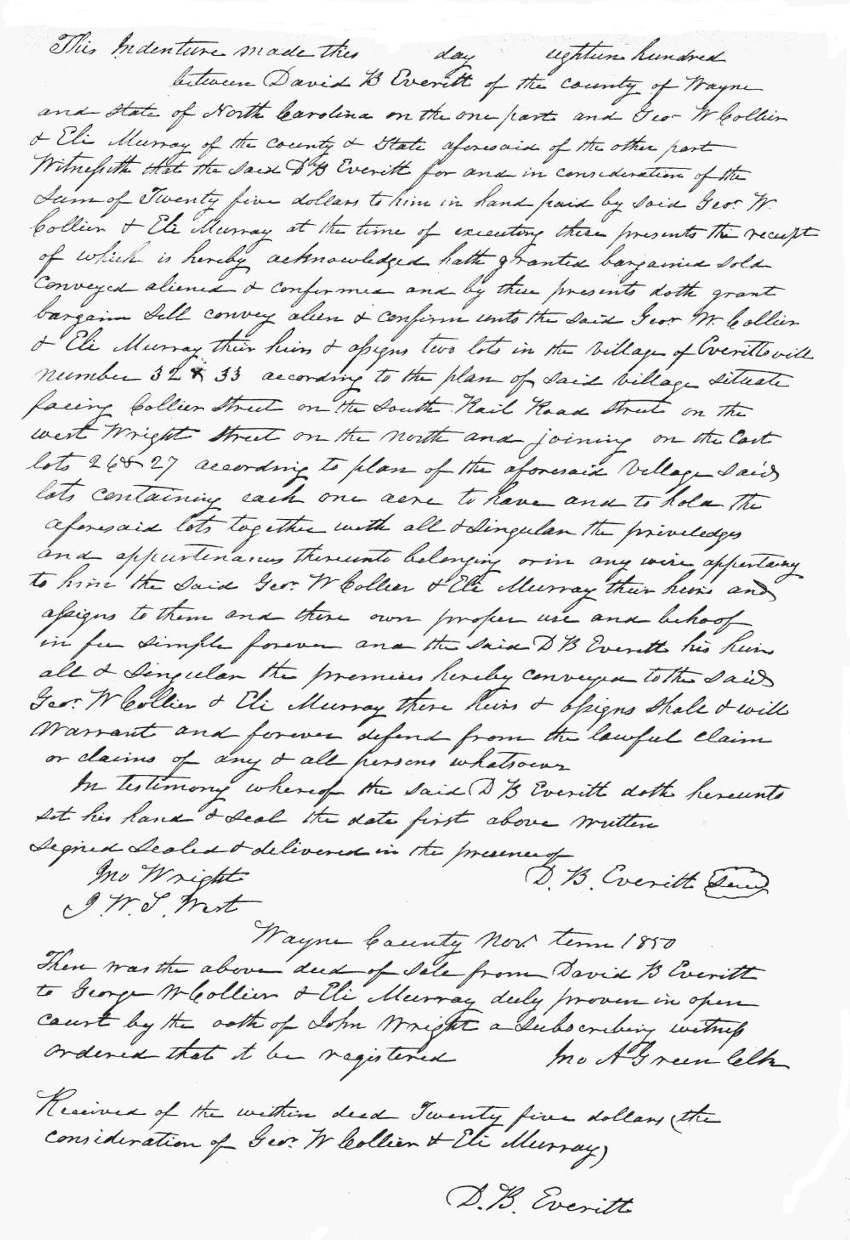 This Indenture made this day eighteen hundred
between David B Everitt of the county of Wayne
and State of North Carolina on the one part and Geo. W Collier
& Eli Murray of the county & State aforesaid of the other part
Witnesseth that the said D B Everitt for and in consideration of the
sum of Twenty five dollars to him in hand paid by said Geo. W
Collier & Eli Murray at the time of executing these presents the receipt
of which is hereby acknowledged hath granted bargained sold
conveyed aliened & confirmed and by these presents doth grant
bargain sell convey alien & confirm unto the said Geo. W. Collier
& Eli Murray their heirs & assigns two lots in the village of Everittsvill
number 32 & 33 according to the plan of said village situate
facing Collier Street on the South Rail Road Street on the
west Wright Street on the north and joining on the East
lots 26 & 27 according to plan of the aforesaid village said
lots containing each one acre to have and to hold the
aforesaid lots together with all & singular the priveledges
and appurtenances thereunto belonging or in any wise appertaining
to him the said Geo. W Collier & Eli Murray their heirs and
assigns to them and there own proper use and behoof
in fee simple forever and the said D B Everitt his heirs
all & singular the premises hereby conveyed to the said
Geo. W Collier & Eli Murray there heirs & assigns shall & will
warrant and forever defend from the lawful claim
or claims of any & all persons whatsoever
In testimony whereof the said D B Everitt doth hereunto
set his hand & seal the date first above written
Signed Sealed & delivered in the presence of
Jno Wright D. B. Everitt Seal
J. W. S. West
Wayne County Nov. term 1850
Then was the above deed of sale from David B Everitt
to George W Collier & Eli Murray duly proven in open
court by the oath of John Wright a subscribing witness
ordered that it be registered Jno A Green Clk
Received of the within deed Twenty five dollars (the
consideration of Geo. W Collier & Eli Murray)
D. B. Everitt